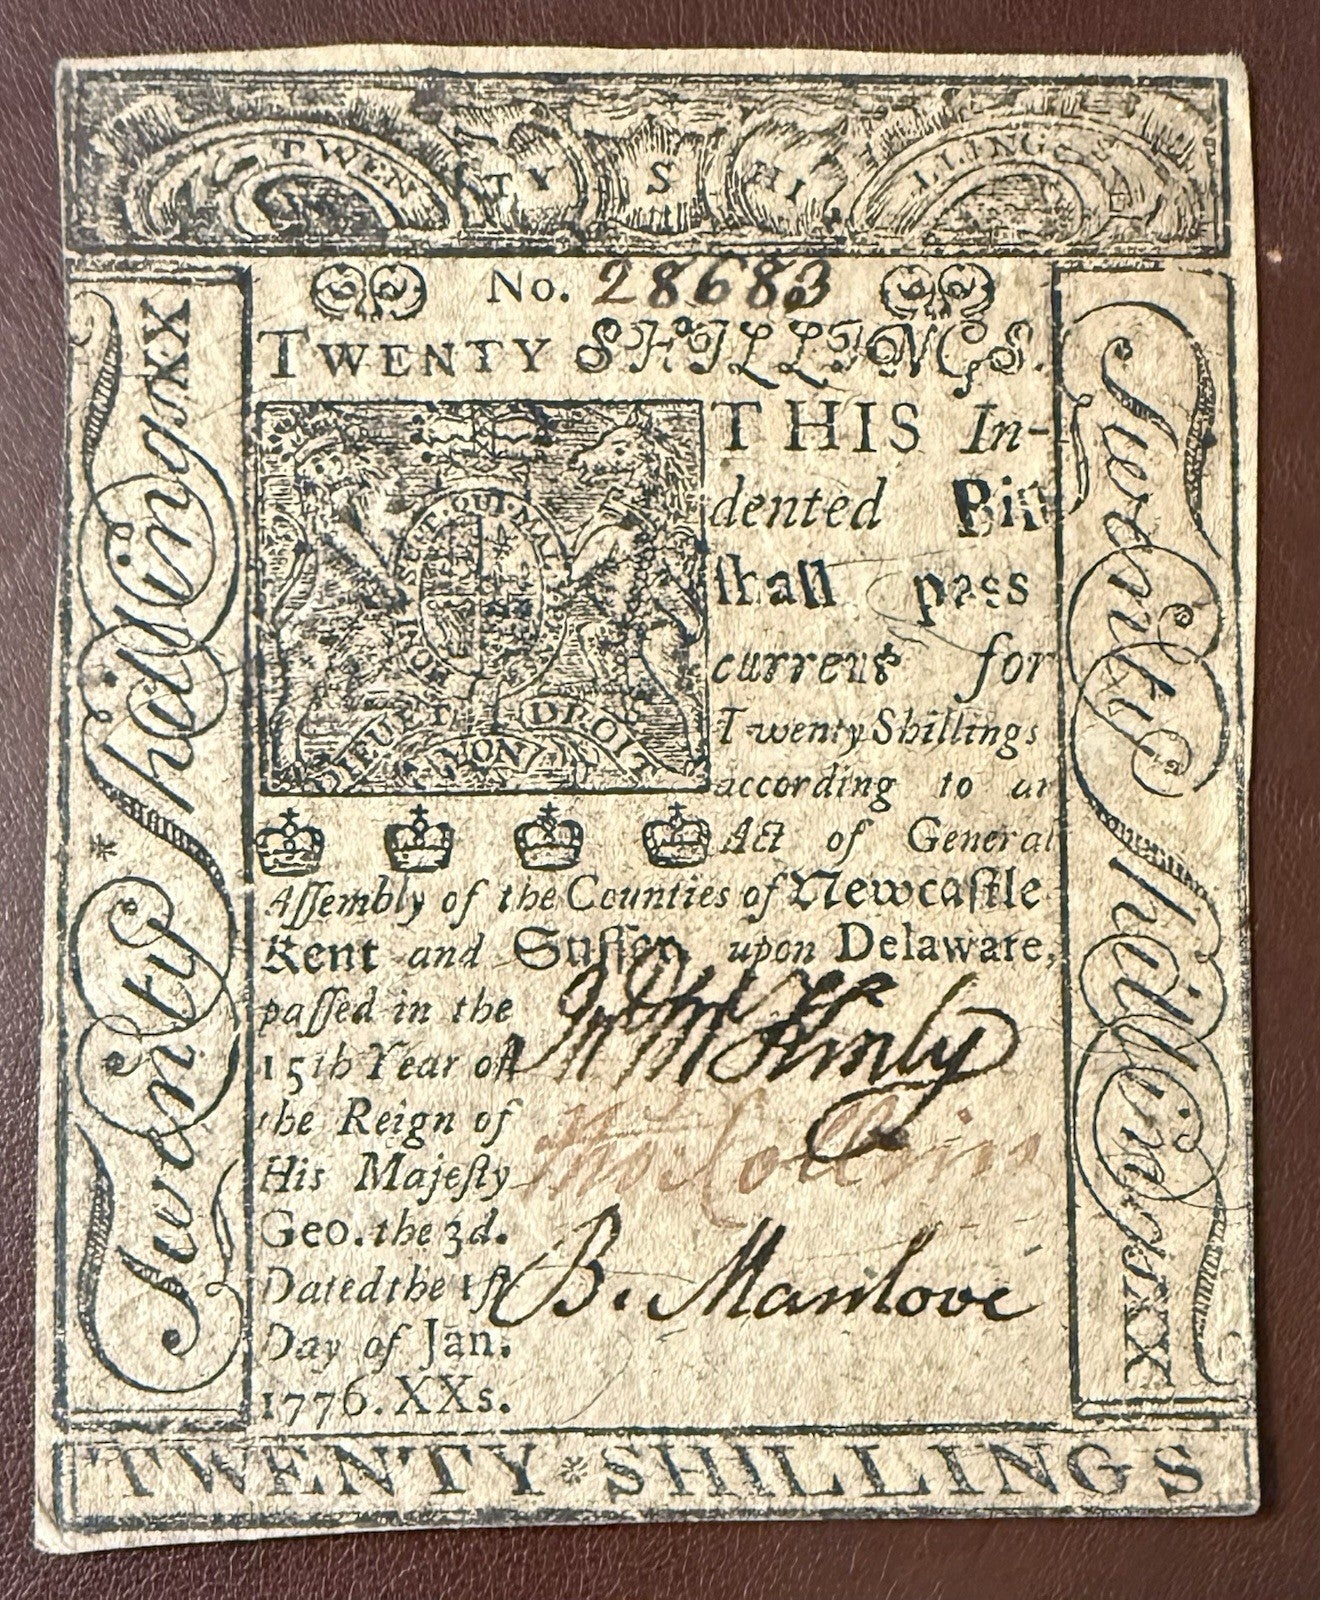 TWENTY SHILLINGS
No. 28683
TWENTY SHILLINGS.
THIS In-
dented Bill
shall pass
HONI SOIT QUI MAL
current for
DIEU ET MON DROIT
Twenty Shillings
according to an
Act of General
Assembly of the Counties of Newcastle
Kent and Sussex upon Delaware,
passed in the
15th Year of
the Reign of
His Majesty
Geo. the 3d.
Dated the 1st
Day of Jan.
1776. XXs.
Thos Collins
B. Manlove
Twenty Shillings XX
Twenty Shillings XX
TWENTY * SHILLINGS